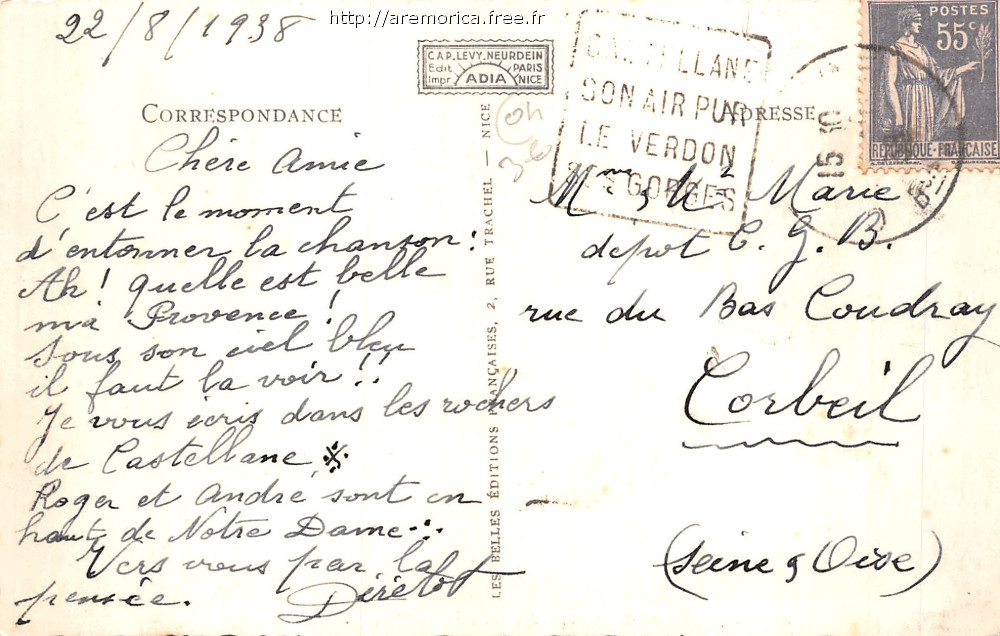 22/8/1938
http://aremorica.free.fr
CAP. LÉVY. NEURDEIN
Edit PARIS
Impr ADIA NICE
CORRESPONDANCE
Chère Amie
C'est le moment
d'entonner la chanson :
Ah ! quelle est belle
ma Provence !
Sous son ciel bleu
il faut la voir !!
Je vous écris dans les rochers
de Castellane
Roger et André sont en
haut de Notre Dame...
Vers vous par la
pensée.
LES BELLES ÉDITIONS FRANÇAISES, 2, RUE TRACHEL — NICE
CASTELLANE
SON AIR PUR
LE VERDON
GORGES
ADRESSE
POSTES
55c
REPUBLIQUE FRANÇAISE
15 10
Mme & Mr Marie
depot C. G. B.
rue du Bas Coudray
Corbeil
(Seine & Oise)